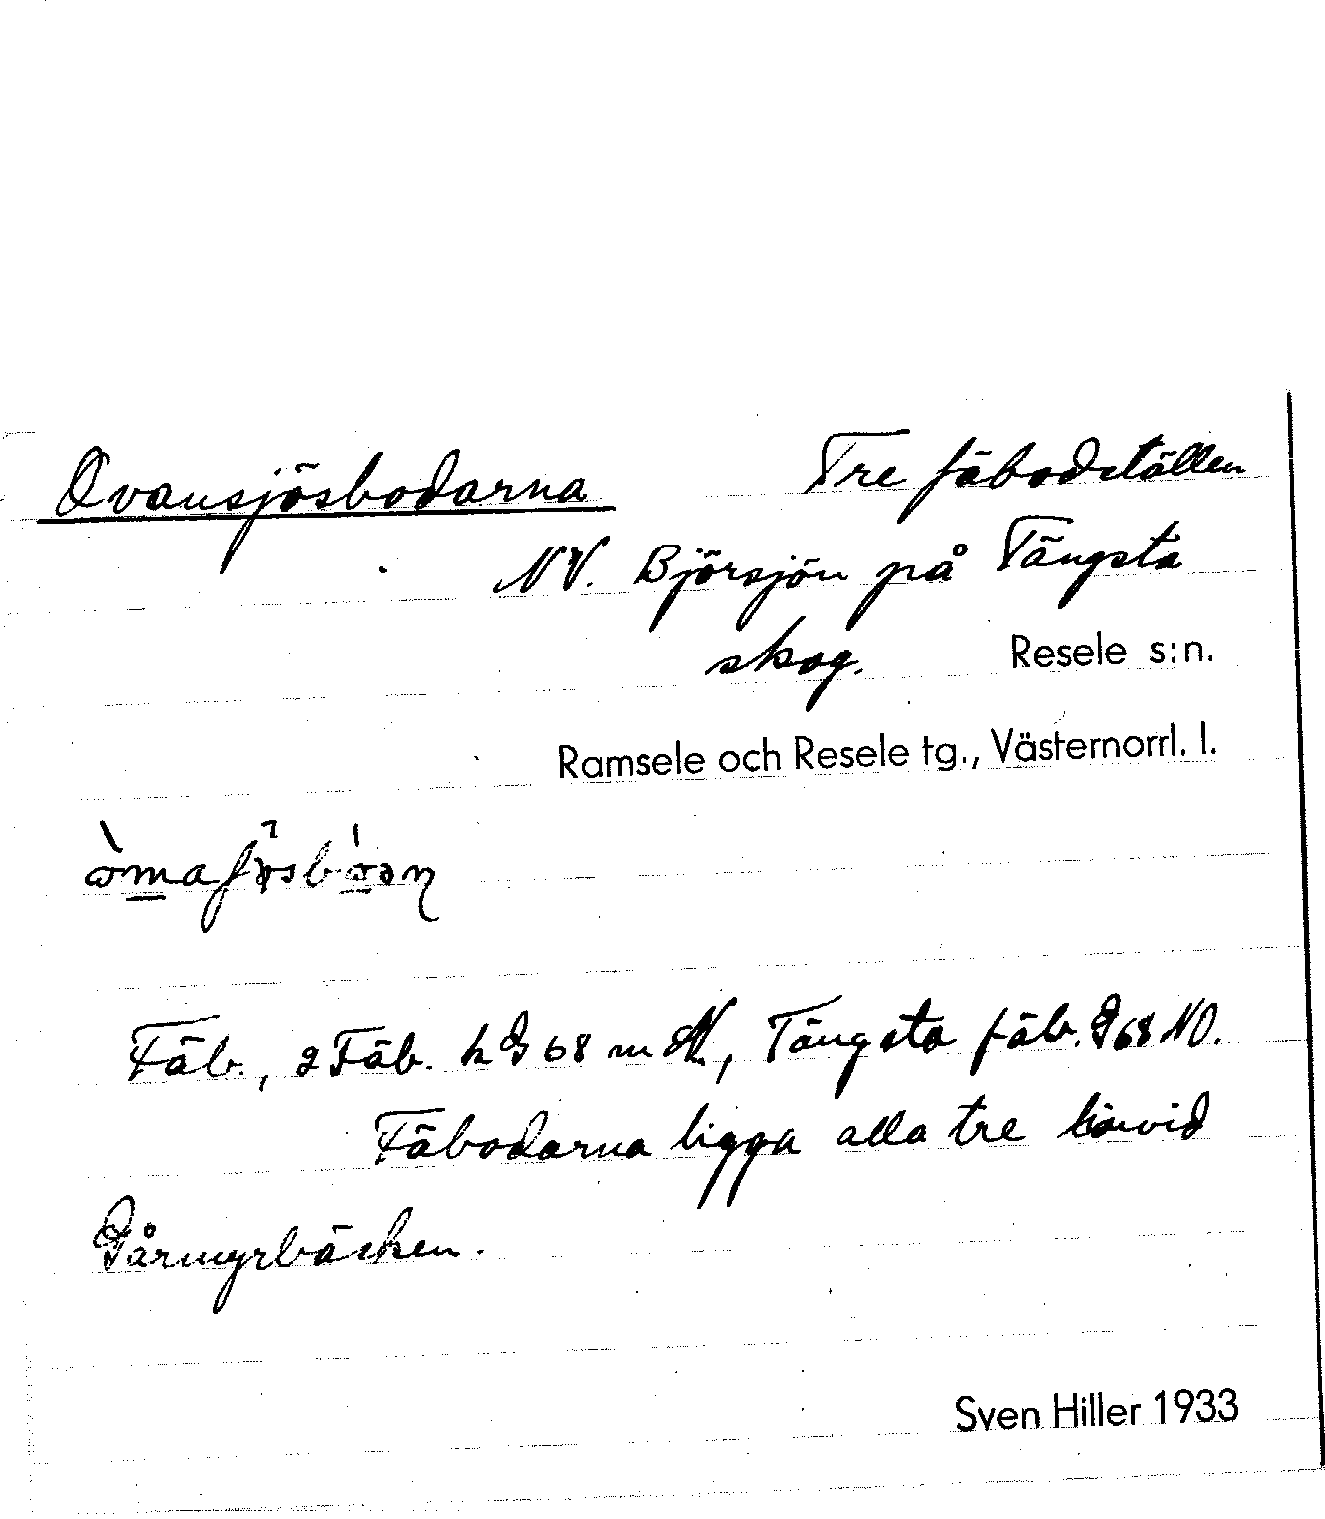 Ovansjösbodarna Tre fäbodställen
NV. Björsjön på Tängsta
skog. Resele s:n.
Ramsele och Resele tg., Västernorrl. l.
Fäb., 2 Fäb. k G 68 m N, Tängsta fäb. G 68 NO.
Fäbodarna ligga alla tre invid
Gårmyrbäcken.
Sven Hiller 1933